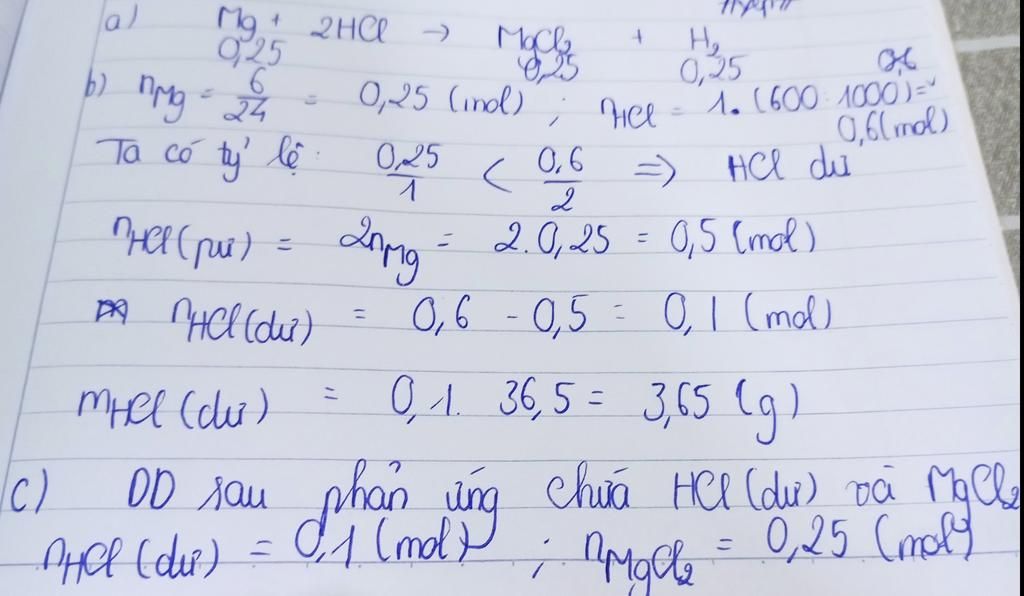 a) Mg + 2HCl → MgCl₂ + H₂
0,25 0,25 0,25
b) nMg = 6/24 = 0,25 (mol) ; nHCl = 1.(600:1000)=
0,6 (mol)
Ta có tỷ lệ: 0,25/1 < 0,6/2 => HCl dư
nHCl (pư) = 2nMg = 2.0,25 = 0,5 (mol)
nHCl (dư) = 0,6 - 0,5 = 0,1 (mol)
mHCl (dư) = 0,1. 36,5 = 3,65 (g)
c) DD sau phản ứng chứa HCl (dư) và MgCl₂
nHCl (dư) = 0,1 (mol) ; nMgCl₂ = 0,25 (mol)